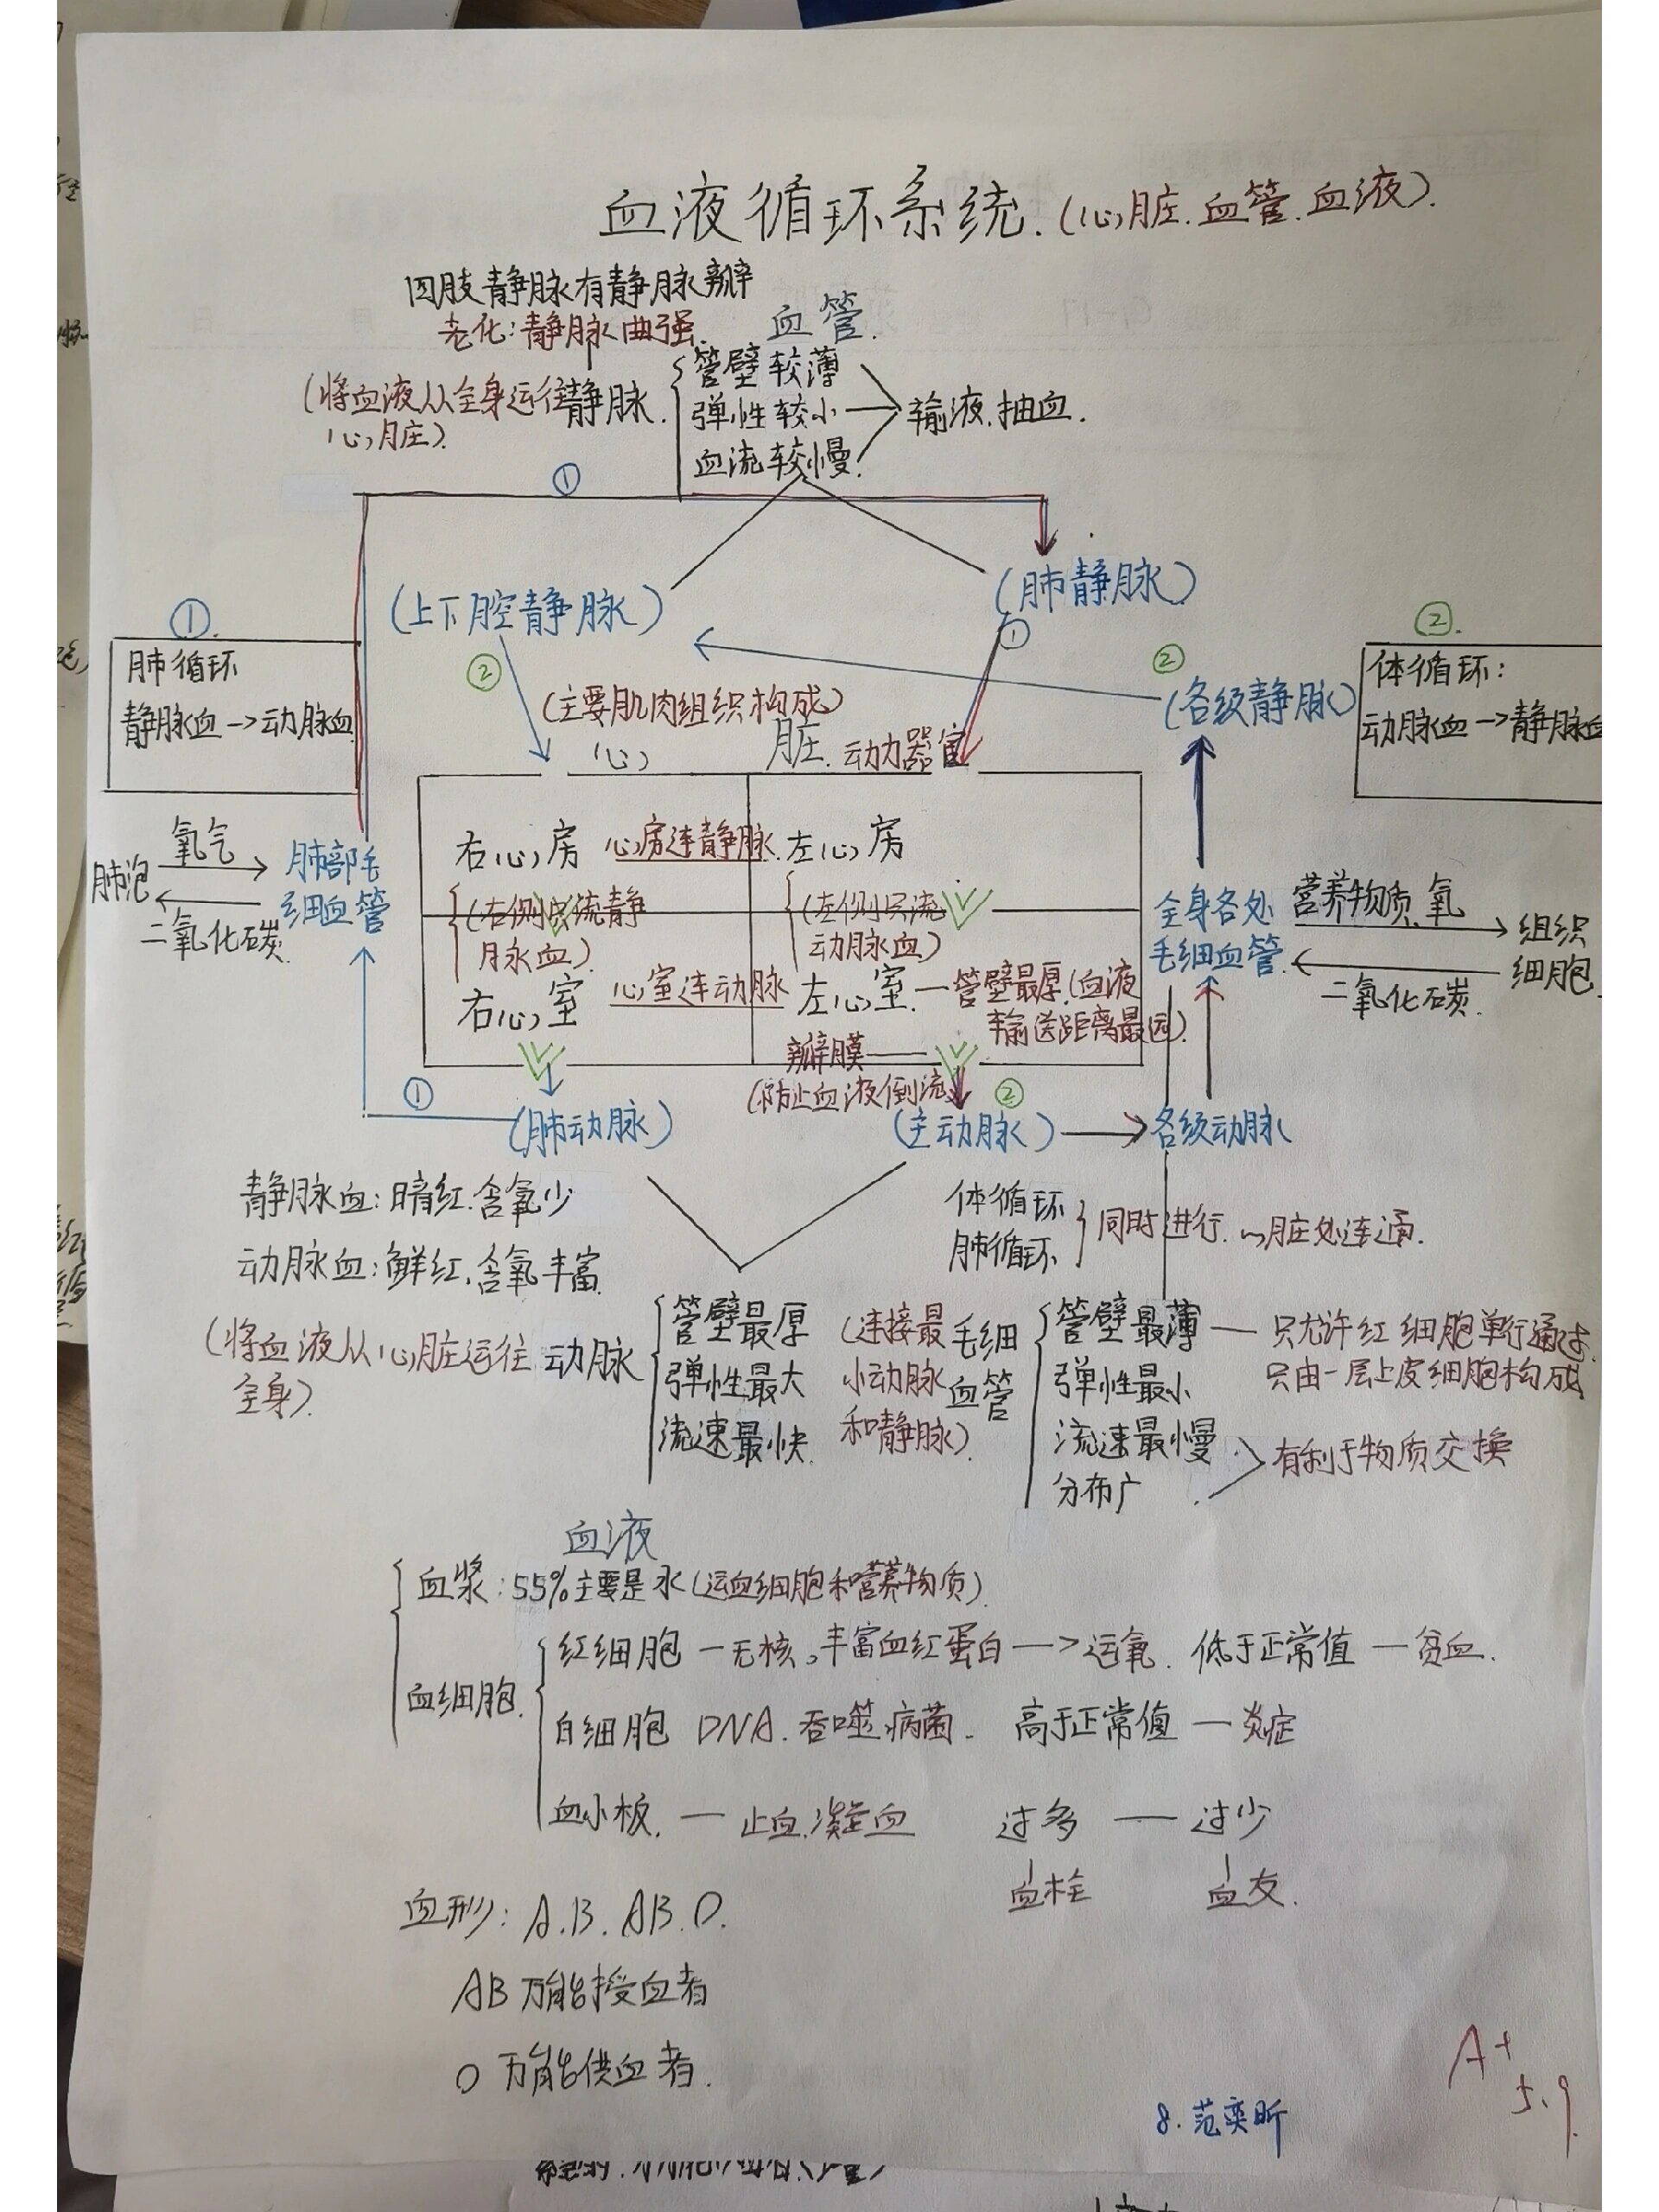 血液循环系统.(心脏.血管.血液).
四肢静脉有静脉瓣
老化:静脉曲强.
血管.
(将血液从全身运往
心脏).
静脉.
管壁较薄
弹性较小
血流较慢.
输液.抽血.
①
(上下腔静脉)
(肺静脉)
①
①.
肺循环
静脉血->动脉血
②.
体循环:
动脉血->静脉血
②
②
(各级静脉)
(主要肌肉组织构成)
心脏. 动力器官
右心房 心房连静脉. 左心房
(右侧只流静
脉血).
(左侧只流
动脉血)
右心室 心室连动脉 左心室.—管壁最厚.(血液
输送距离最远).
瓣膜——
(防止血液倒流)
氧气
肺泡
二氧化碳.
肺部毛
细血管
全身各处
毛细血管.
营养物质.氧
组织
细胞
二氧化碳.
①
(肺动脉)
(主动脉)
②
各级动脉
静脉血:暗红.含氧少
动脉血:鲜红.含氧丰富.
体循环
肺循环
同时进行. 心脏处连通.
(将血液从心脏运往
全身).
动脉
管壁最厚
弹性最大
流速最快.
(连接最
小动脉
和静脉).
毛细
血管
管壁最薄 — 只允许红细胞单行通过.
只由一层上皮细胞构成
弹性最小
流速最慢
分布广
有利于物质交换
血液
血浆:55%主要是水(运血细胞和营养物质).
血细胞.
红细胞 —无核,丰富血红蛋白—>运氧. 低于正常值 —贫血.
白细胞 DNA.吞噬病菌. 高于正常值 —炎症
血小板. — 止血.凝血 过多 — 过少
血栓 血友.
血形:A.B.AB.O.
AB 万能授血者
O 万能供血者.
A+
5.9
8.范奕昕